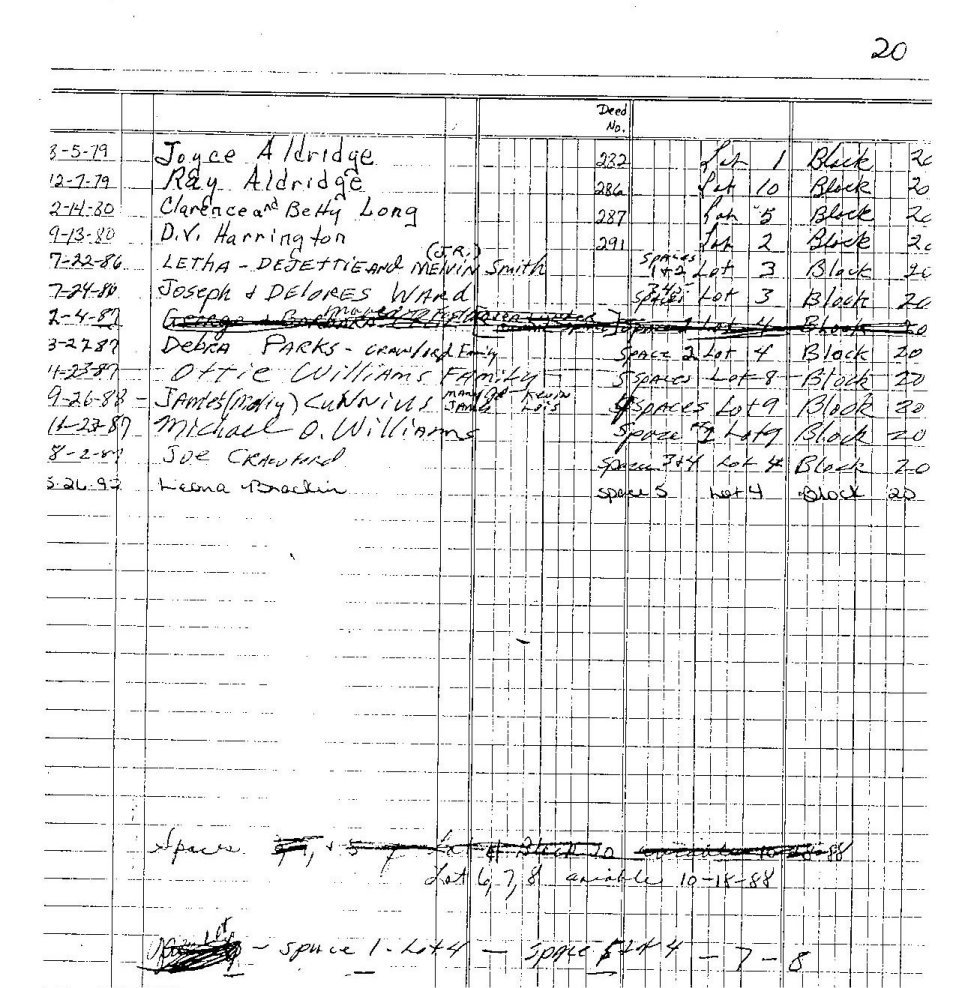 20
Deed No.
3-5-79 Joyce Aldridge 232 Lot 1 Block 20
12-7-79 Ray Aldridge 286 Lot 10 Block 20
2-14-80 Clarence and Betty Long 287 Lot 5 Block 20
9-13-80 D.V. Harrington 291 Lot 2 Block 20
7-22-86 LETHA - DEJETTIE AND MELVIN (J.R.) Smith spaces 1+2 Lot 3 Block 20
7-24-86 JOSEPH & DELORES WARD 3,4,5 spaces Lot 3 Block 20
2-4-87 George & BARBARA Lot 4 Block 20
3-27-87 DEBRA PARKS - CRAWFORD Family SPACE 2 Lot 4 Block 20
11-23-87 OTTIE WILLIAMS FAMILY 5 SPACES Lot 8 Block 20
9-26-88 - JAMES (Molly) CUNNIUS JAMES Kevin Lois 4 SPACES Lot 9 Block 20
11-23-87 MICHAEL O. WILLIAMS Space #1 Lot 9 Block 20
8-2-89 JOE CRAWFORD Space 3+4 Lot 4 Block 20
5-26-92 Leona Brackin space 5 Lot 4 Block 20
Spaces + 5 Lot 4 Block 20
Lot 6, 7, 8 10-18-88
- space 1 - Lot 4 - Space 5 Lot 4 - 7 - 8